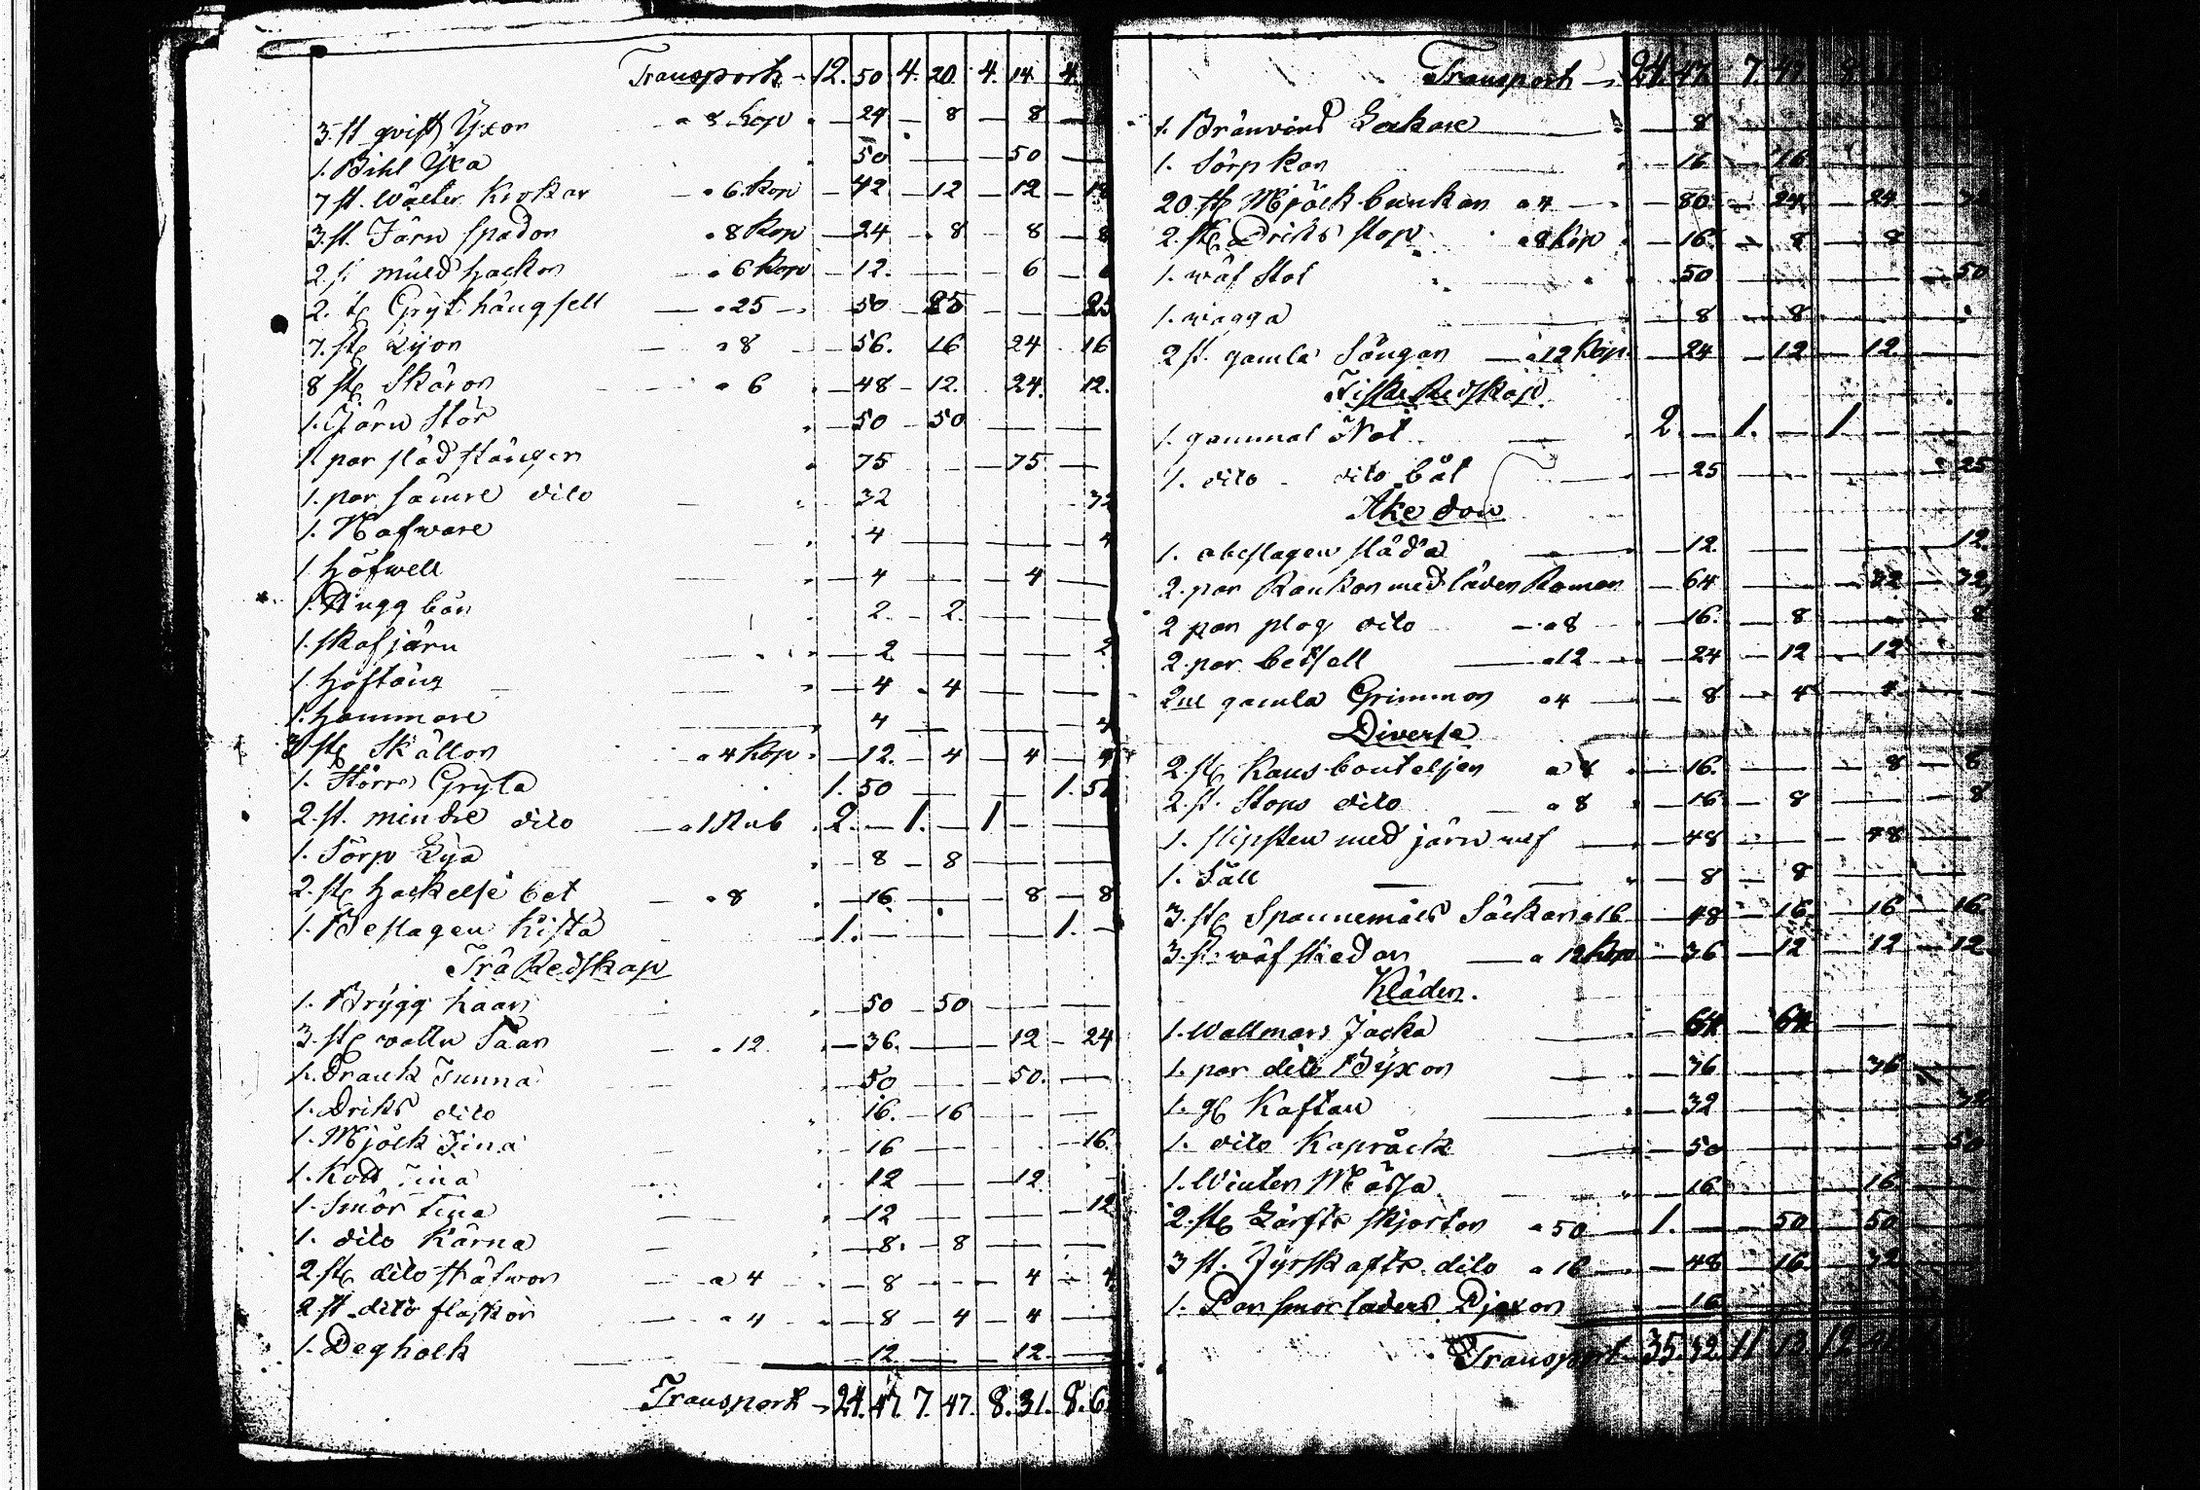 Transport - 12. 50 4. 20. 4. 14 4.
3. st qvist Yxor - a 8 Kop - 24 - 8 - 8 -
1. Bihl Yxa 50 - - 50 -
7 st. Wäeter Krokar - a 6 Kop - 42 - 12 - 12 - 18
3. st. Järn Spador a 8 Kop - 24 - 8 8 - 8
2. st muld hackor - a 6 Kop - 12. - - 6 - 6
2. st Gryt hängsell - a 25 - 50 - 25 - - 25
7. st Lijor - a 8 - 56. 16 24 - 16
8 st Skäror - a 6 - 48 - 12. 24. 12.
1. Järn Stör 50 - 50 - -
1. par släd stänger 75 - 75 -
1. par sämre dito - 32 32
1. Nafware - 4 - - 4
1. höfwell - 4 - 4 -
1. Hugg bän 2 - 2 - -
1. skafjärn - 2 - - 2
1. hoftång - 4 - 4 - -
1. hammare 4 - - 4
3 st Skällor a 4 Kop - 12. - 4 - 4 - 4
1. Större Gryta 1. 50 - - 1. 50
2. st. mindre dito - a 1 Rub 2. - 1. - 1 - -
1. Sörp Lya - 8 - 8 - -
2. st hackelse bet - a 8 - 16 - - 8 - 8
1. Beslagen Kista 1. - - - 1. -
Trä Redskap
1. Brygg kaar 50 - 50 - -
3. st vattu Såar - a 12 - 36. - 12 - 24
1. Dranck Tunna 50 - - 50. -
1. Driks dito 16. - 16 - -
1. Mjölk Tina 16 - - 16.
1. Kött Tina 12 - 12. -
1. Smör tina - 12 - - 12
1. dito Kärna - 8. - 8 - -
2. st dito skålwor - a 4 - 8 - - 4 - 4
2. st dito flaskor - a 4 - 8 - 4 - 4 -
1. Degholk - 12 - - 12. -
Transport - 24. 47. 7. 47. 8. 31. 8. 6
Transport - 24. 47. 7. 47 8.
1. Bränvins Lackare - 8 - - -
1. Sörp kar - 16 - 16 - -
20 st Mjölk bunkar a 4 - 80. - 24. - 24. -
2. st Driks stop a 8 Kop - 16. - 8 - 8 -
1. wäf Stol 50 - - - 50
1. wagga - 8 - 8 - -
2 st. gamla Sängar - a 12 Kop. - 24 - 12 - 12. -
Fiske Redskap
1. gammal Not - 2. - 1. - 1. - -
1. dito - dito båt - 25 - - - 25
Åke don
1. obeslagen släda - 12. - - - 12.
2. par Rankor med läder Remar - 64 - - 32 - 32
2 par plog dito - a 8 - 16. - 8 - - 8
2. par betsell - a 12 - 24 - 12 - 12 -
2ne gamla Grimmor a 4 - 8 - 4 - 4 -
Diverse
2. st Kans bouteljer a 8 - 16. - - 8 - 8
2. st. Stops dito - a 8 - 16 - 8 - - 8
1. slipsten med järn wef - 48 - - 48 -
1. Såll - 8 - 8 - -
3. st Spannemåls Säckar a 16 - 48 - 16 - 16 - 16
3. st wäf skedar - a 12 Kop - 36 - 12 - 12 - 12
Kläder.
1. Wallmars Jacka - 64 - 64 - -
1. par dito Byxor - 36 - - 36 -
1. gl Kaftan - 32 - - - 32
1. dito Kapråck - 50 - - - 50
1. Winter Mössa - 16. - - 16. -
2. st Lärfts skjortor a 50 - 1. - - 50 - 50 -
3 st. Fyrskafts dito a 16 - 48 - 16 - 32 -
1. Par smorläders Pjexor - 16
Transport 35. 42. 11. 13. 12